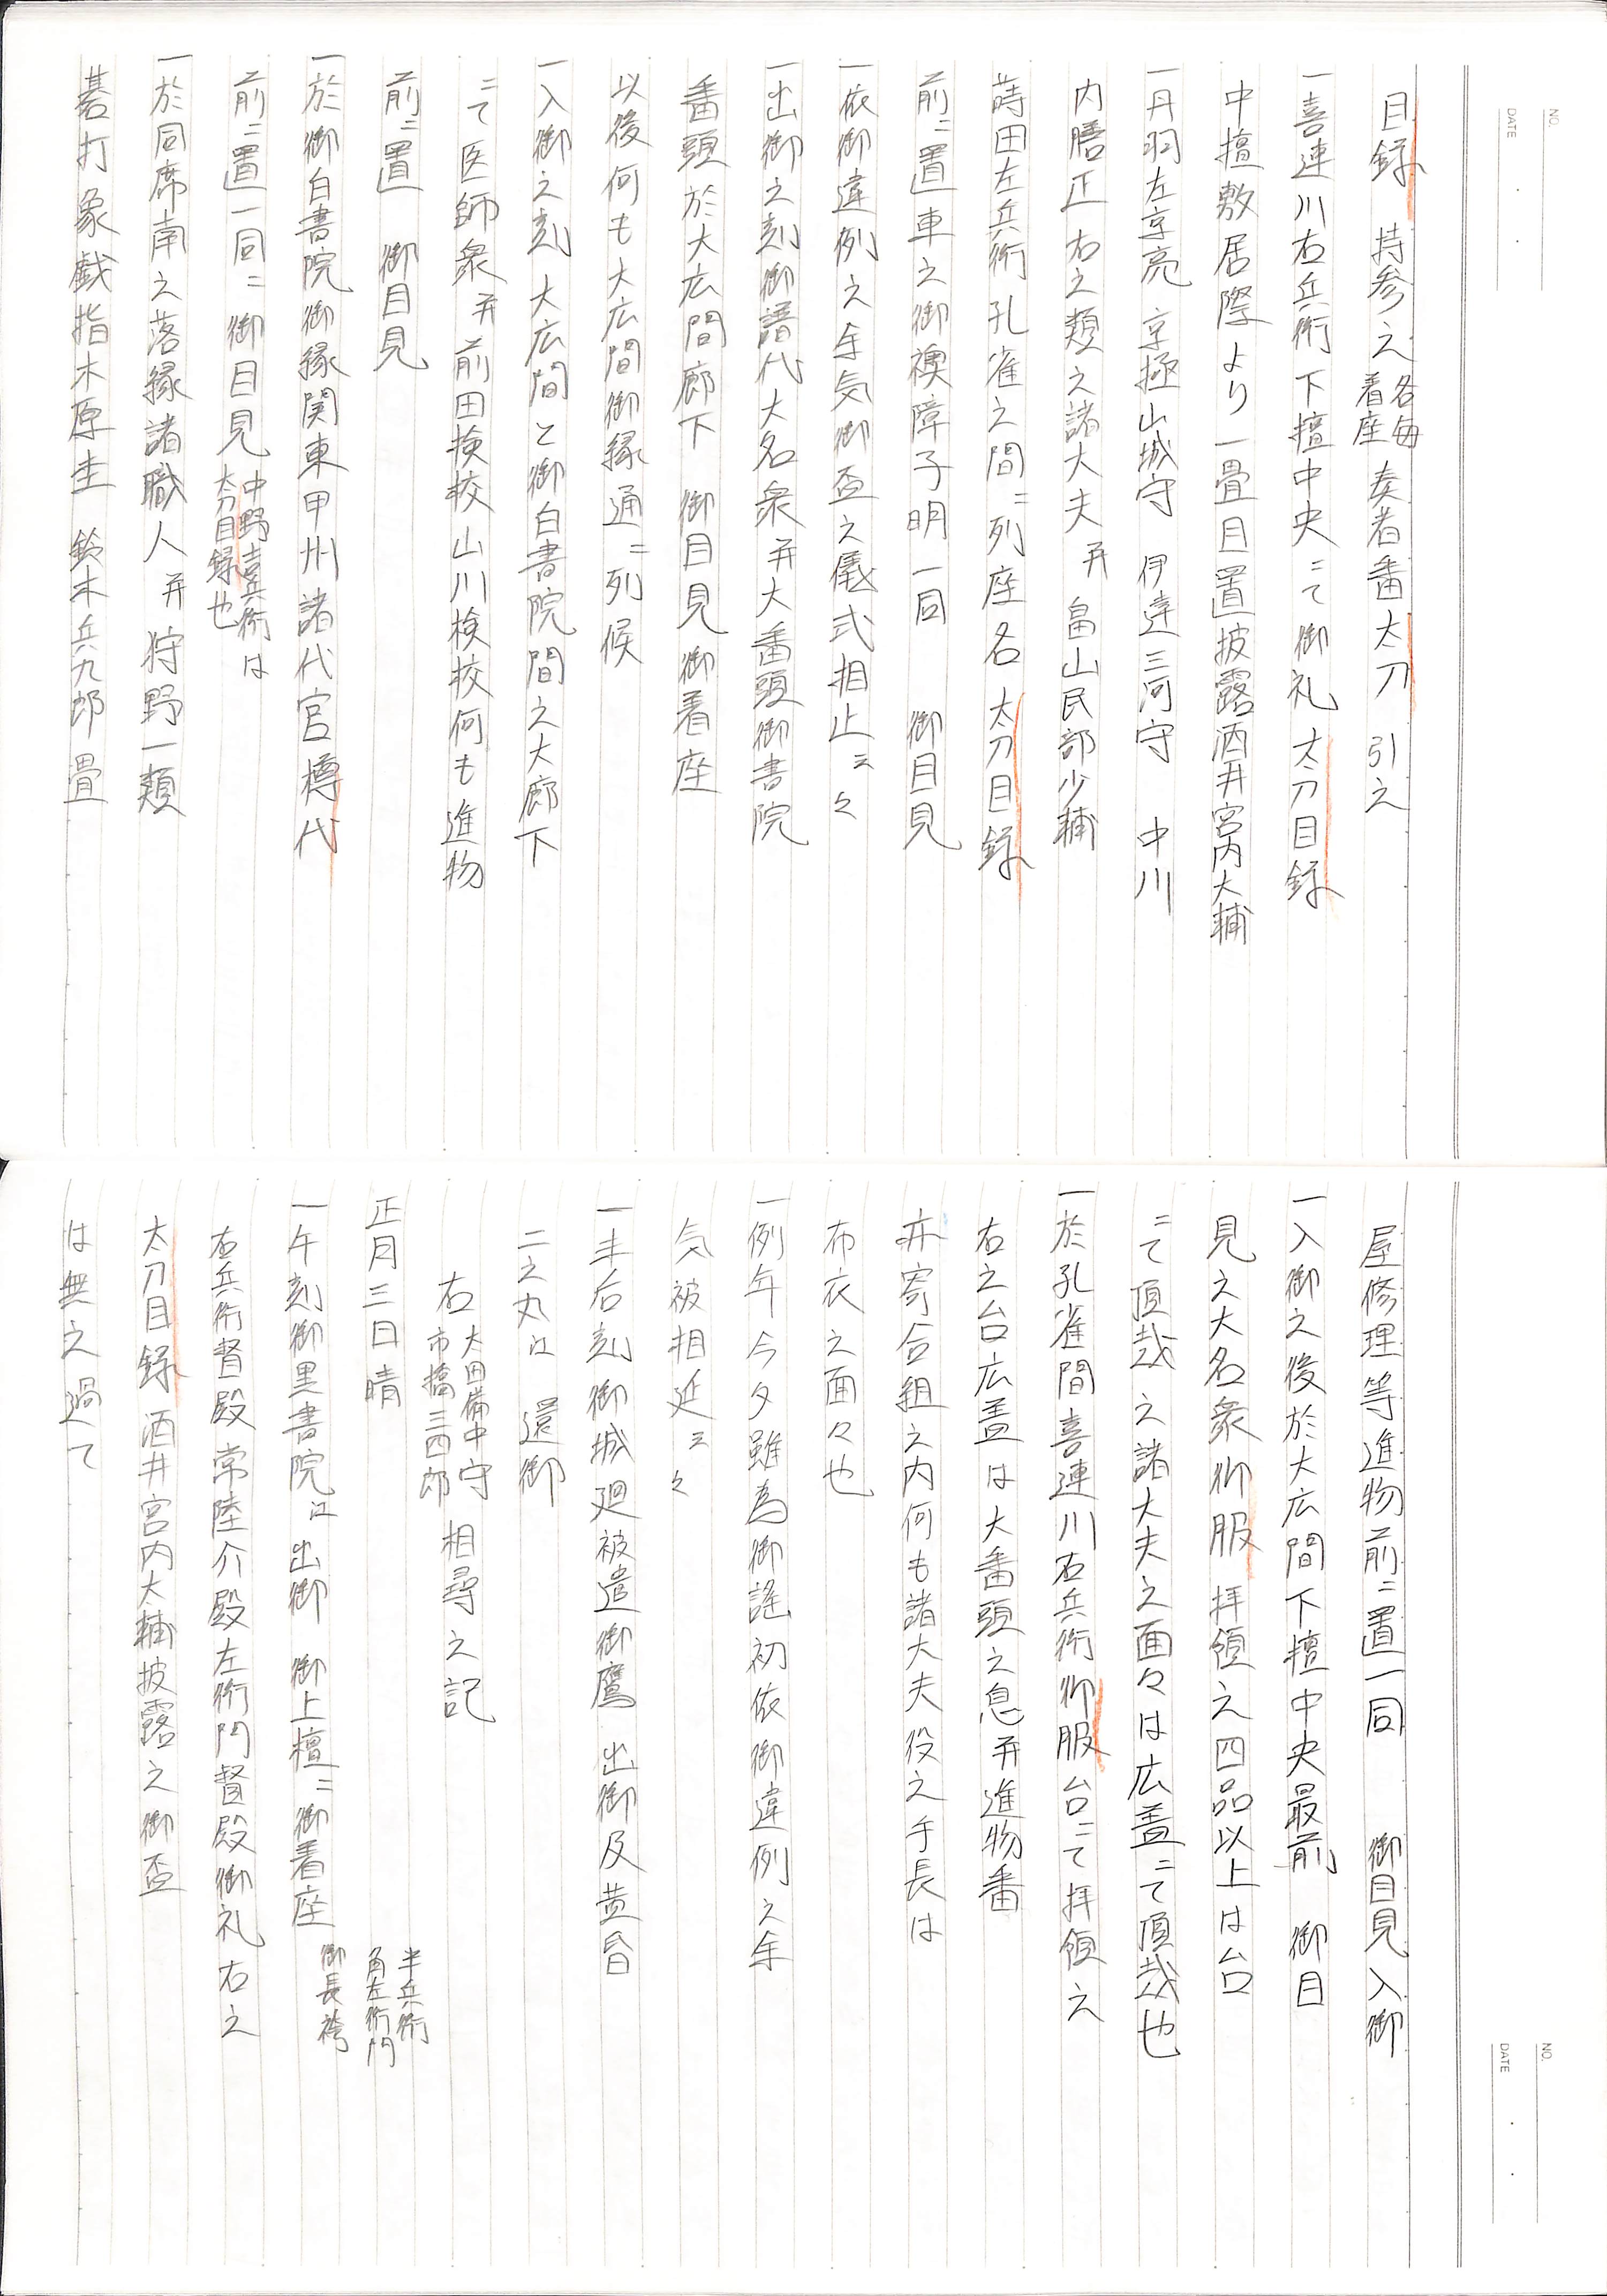 NO.
DATE
目録 持参之各毎着座 奏者番太刀 引之
一喜連川右兵衛下檀中央ニて御礼 太刀目録
中檀敷居際より一畳目置披露酒井宮内大輔
一丹羽左京亮 京極山城守 伊達三河守 中川
内膳正 右之類之諸大夫并 畠山民部少輔
蒔田左兵衛 孔雀之間ニ列座名 太刀目録
前ニ置 車之御襖障子明一同 御目見
一依御違例之余気御盃之儀式相止云々
一出御之刻御譜代大名衆并大番頭御書院
番頭於大広間廊下 御目見御着座
以後何も大広間御縁通ニ列候
一入御之刻 大広間と御白書院間之大廊下
ニて医師衆并 前田検校山川検校何も進物
前ニ置 御目見
一於御白書院御縁関東甲州諸代官樽代
前ニ置一同ニ 御目見 中野吉兵衛は太刀目録也
一於同席南之落縁諸職人并 狩野一類
碁打象戯指木原圭 鈴木兵九郎 畳
NO.
DATE
屋修理等進物前ニ置一同 御目見入御
一入御之後於大広間下檀中央最前 御目
見之大名衆御服 拝領之四品以上は台
ニて頂哉 之諸大夫之面々は広蓋ニて頂哉也
一於孔雀間喜連川右兵衛御服台ニて拝領之
右之台広蓋は大番頭之息并進物番
亦寄合組之内何も諸大夫役之手長は
布衣之面々也
一例年今夕雖為御謡初依御違例之余
気被相延云々
一未后刻御城廻被遣御鷹 出御及黄昏
二之丸江 還御
右 太田備中守 市橋三四郎 相尋之記
正月三日晴 半兵衛 角左衛門
一午刻御黒書院江 出御 御上檀ニ御着座 御長袴
右兵衛督殿常陸介殿左衛門督殿御礼右之
太刀目録 酒井宮内大輔披露之御盃
は無之過て